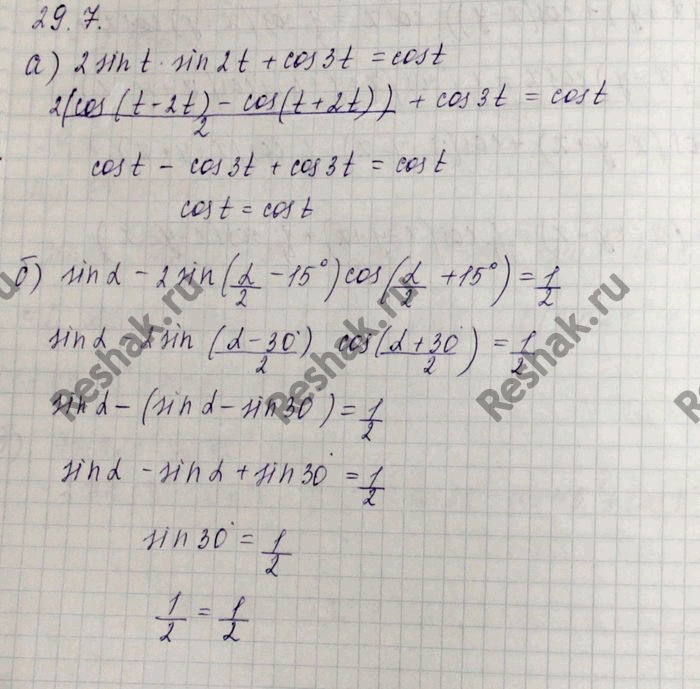 29.7.
а) 2 sin t · sin 2t + cos 3t = cos t
2(cos(t-2t) - cos(t+2t))/2 + cos 3t = cos t
cos t - cos 3t + cos 3t = cos t
cos t = cos t
б) sin α - 2 sin(α/2 - 15°) cos(α/2 + 15°) = 1/2
sin α - 2 sin (α-30°)/2 cos(α+30°)/2 = 1/2
sin α - (sin α - sin 30°) = 1/2
sin α - sin α + sin 30° = 1/2
sin 30° = 1/2
1/2 = 1/2
Reshak.ru
Reshak.ru
Reshak.ru